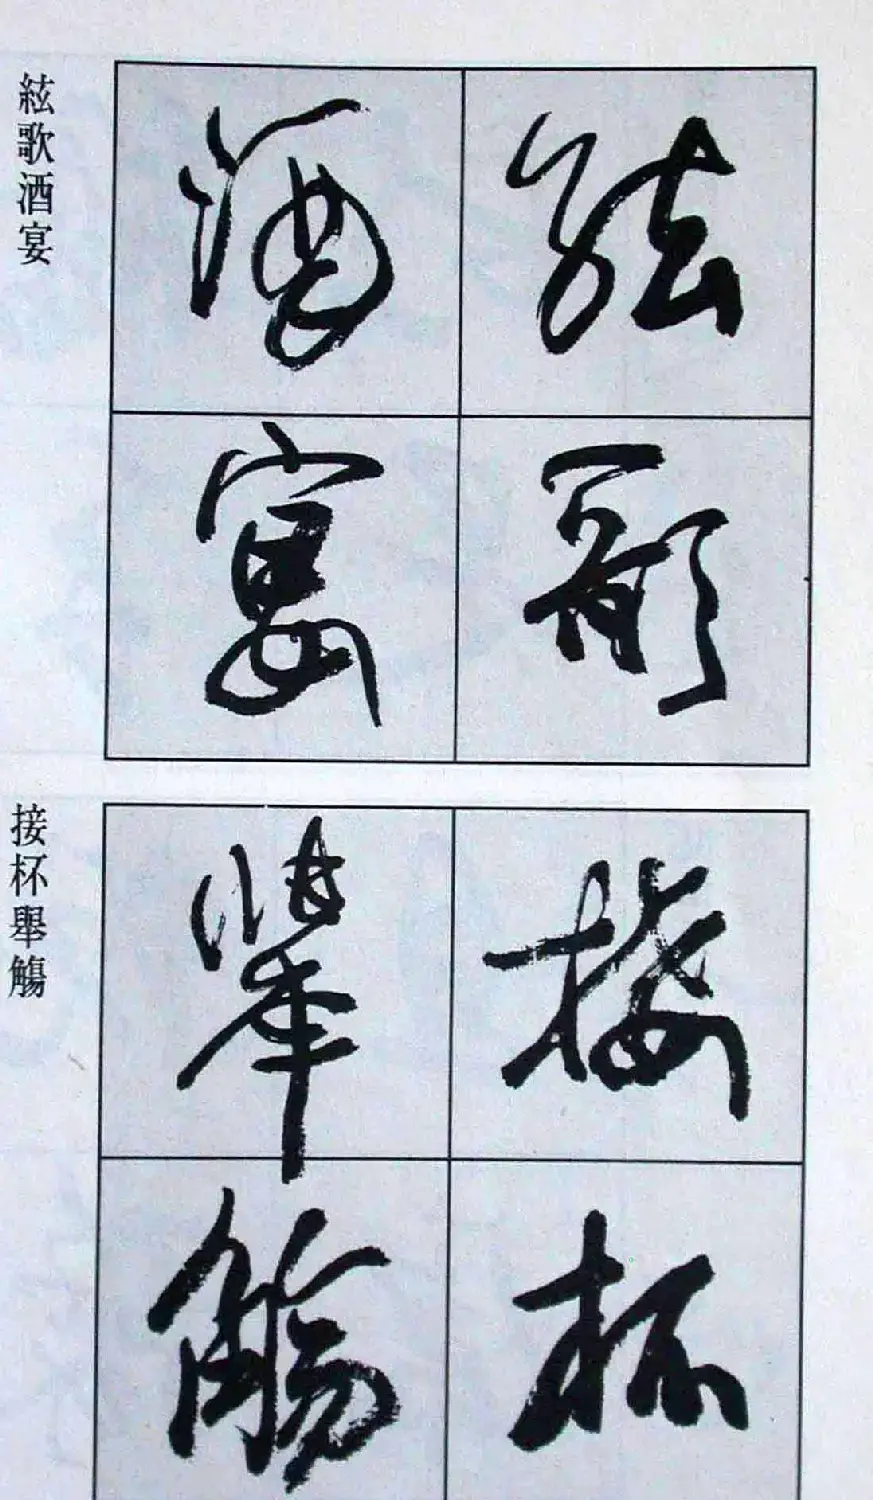 絃歌酒宴
絃歌
酒宴
接杯舉觴
接杯
舉觴